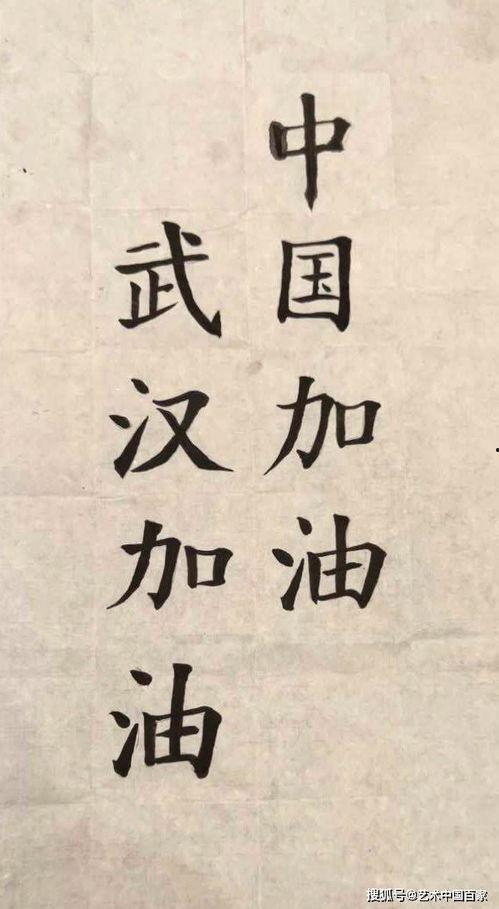 中国加油
武汉加油
搜狐号@艺术中国百家